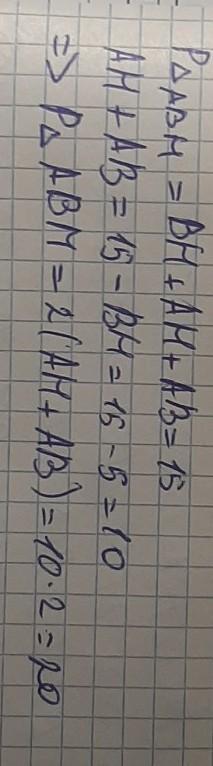 P△ABM = BM + AM + AB = 15
AM + AB = 15 - BM = 15 - 5 = 10
=> P△ABM = 2(AM + AB) = 10 · 2 = 20